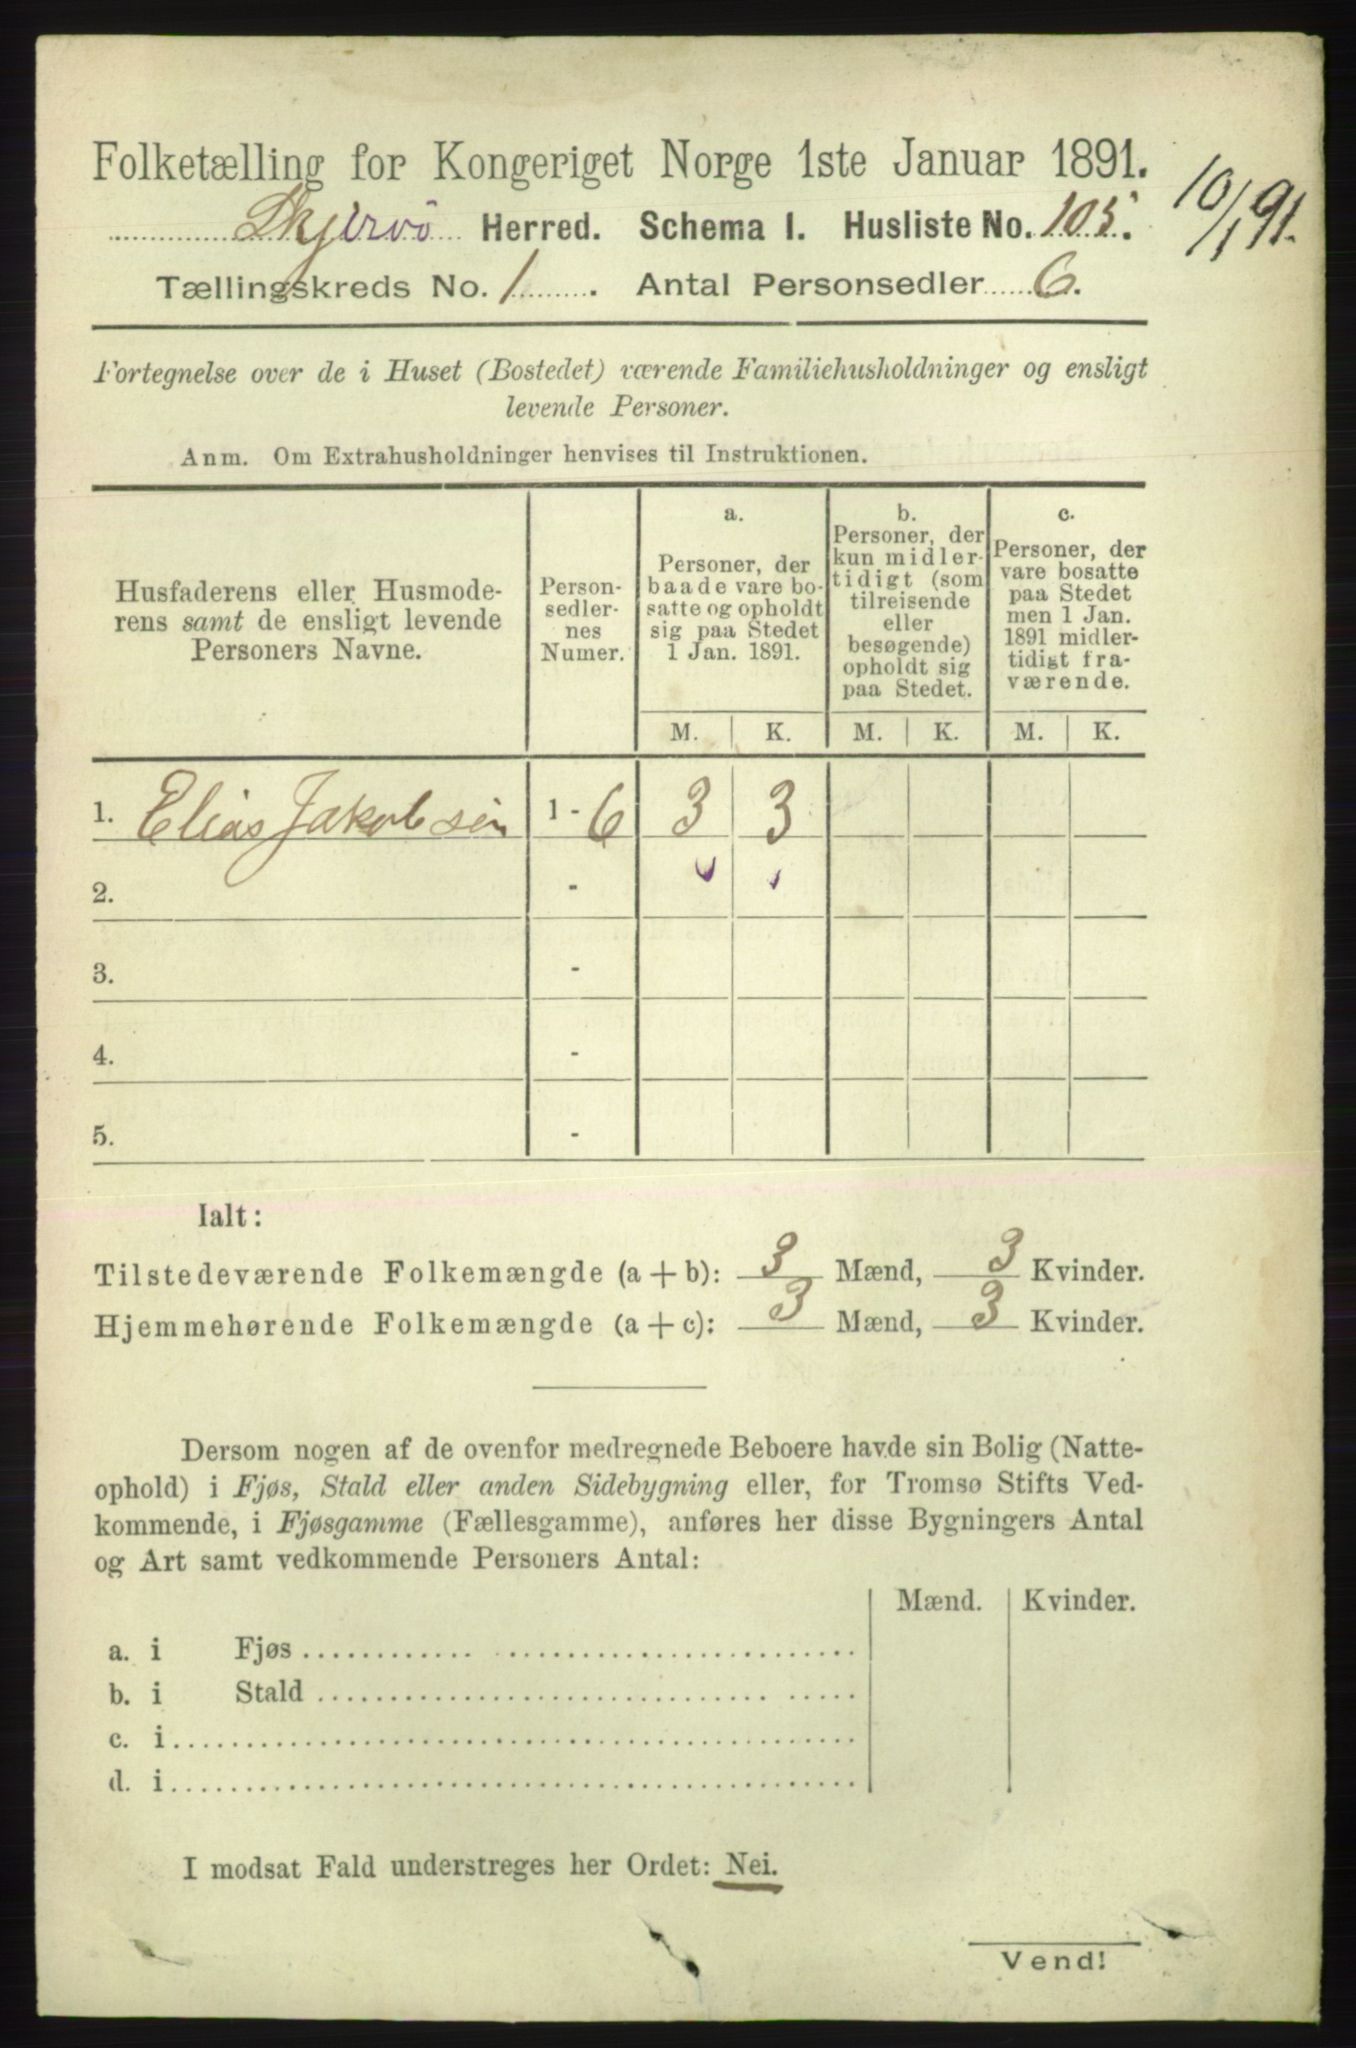 Folketælling for Kongeriget Norge 1ste Januar 1891.
10/1 91.
Skjervö Herred. Schema I. Husliste No. 105.
Tællingskreds No. 1. Antal Personsedler 6.
Fortegnelse over de i Huset (Bostedet) værende Familiehusholdninger og ensligt
levende Personer.
Anm. Om Extrahusholdninger henvises til Instruktionen.
Husfaderens eller Husmode-
rens samt de ensligt levende
Personers Navne.
Person-
sedler-
nes
Numer.
a.
Personer, der
baade vare bo-
satte og opholdt
sig paa Stedet
1 Jan. 1891.
b.
Personer, der
kun midler-
tidigt (som
tilreisende
eller
besøgende)
opholdt sig
paa Stedet.
c.
Personer, der
vare bosatte
paa Stedet
men 1 Jan.
1891 midler-
tidigt fra-
værende.
M. K. M. K. M. K.
1. Elias Jakobsen 1 - 6 3 3
2. -
3. -
4. -
5. -
Ialt:
Tilstedeværende Folkemængde (a+b): 3 Mænd, 3 Kvinder.
Hjemmehørende Folkemængde (a+c): 3 Mænd, 3 Kvinder.
Dersom nogen af de ovenfor medregnede Beboere havde sin Bolig (Natte-
ophold) i Fjøs, Stald eller anden Sidebygning eller, for Tromsø Stifts Ved-
kommende, i Fjøsgamme (Fællesgamme), anføres her disse Bygningers Antal
og Art samt vedkommende Personers Antal:
Mænd. Kvinder.
a. i Fjøs
b. i Stald
c. i
d. i
I modsat Fald understreges her Ordet: Nei.
Vend!